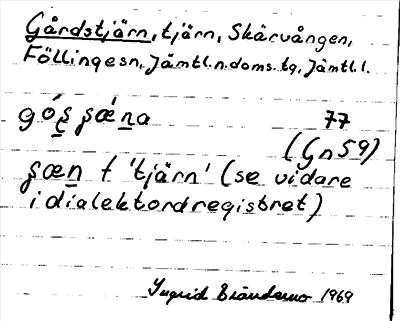 Gårdstjärn, tjärn, Skärvången,
Föllinge sn, Jämtl. n. doms. tg, Jämtl. l.
77
(Gn59)
f 'tjärn' (se vidare
i dialektordregistret)
Ingrid 1969